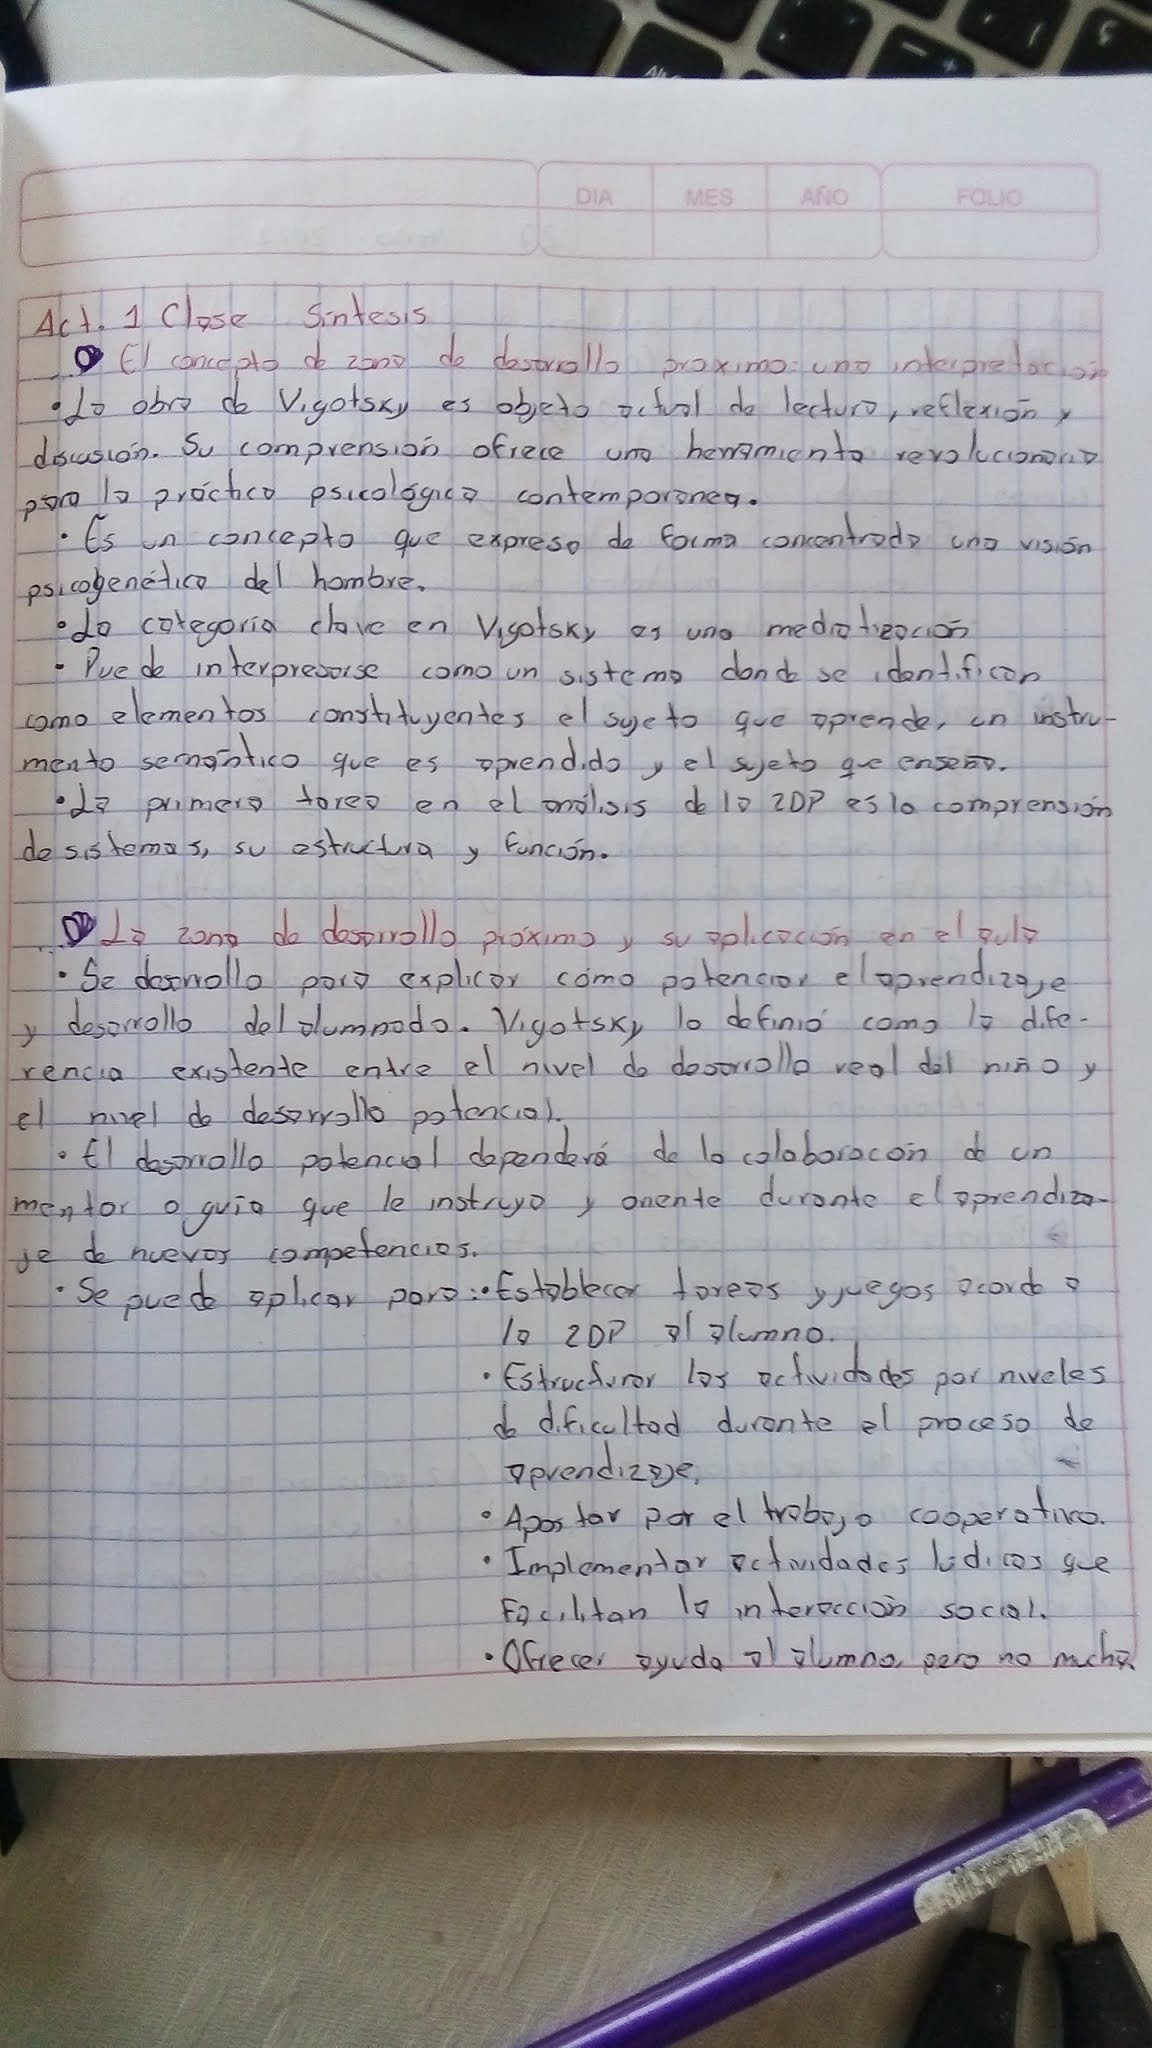 Alt
DIA MES AÑO FOLIO
Act. 1 Clase Síntesis
El concepto de zona de desarrollo proximo: una interpretación
• La obra de Vigotsky es objeto actual de lectura, reflexión y
discusión. Su comprensión ofrece una herramienta revolucionaria
para la práctica psicológica contemporanea.
• Es un concepto que expresa de forma concentrada una visión
psicogenética del hombre.
• La categoría clave en Vigotsky es una mediatización
• Puede interpresarse como un sistema donde se identifican
como elementos constituyentes el sujeto que aprende, un instru-
mento semántico que es aprendido y el sujeto que enseña.
• La primera tarea en el análisis de la ZDP es la comprensión
de sistemas, su estructura y función.
La zona de desarrollo próximo y su aplicación en el aula
• Se desarrollo para explicar cómo potenciar el aprendizaje
y desarrollo del alumnado. Vigotsky lo definió como la dife-
rencia existente entre el nivel de desarrollo real del niño y
el nivel de desarrollo potencial.
• El desarrollo potencial dependerá de la colaboracón de un
mentor o guía que le instruya y oriente durante el aprendiza-
je de nuevas competencias.
• Se puede aplicar para: • Establecer tareas y juegos acorde a
la ZDP al alumno.
• Estructurar las actividades por niveles
de dificultad durante el proceso de
aprendizaje.
• Apostar por el trabajo cooperativo.
• Implementar actividades lúdicas que
facilitan la interacción social.
• Ofrecer ayuda al alumno, pero no mucha.